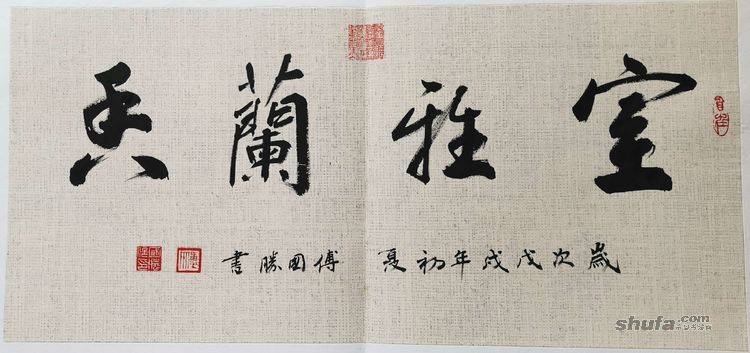 室雅蘭香
歲次戊戌年初夏 傅国勝書
shufa.com